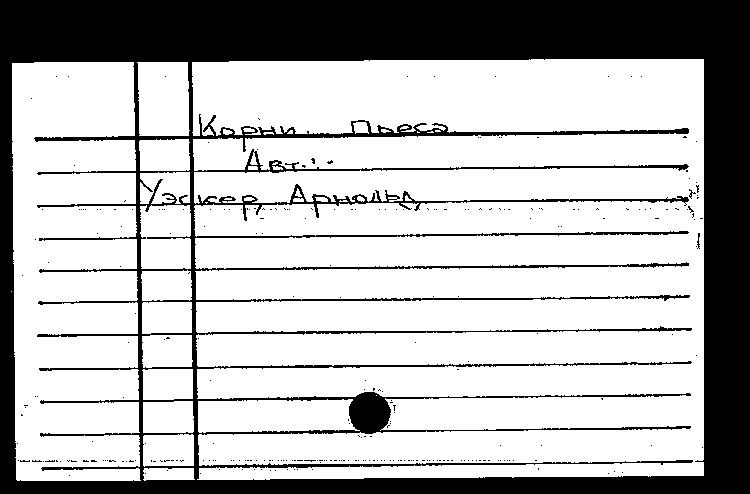 Корни. Пьеса
Авт.:
Уэскер, Арнольд